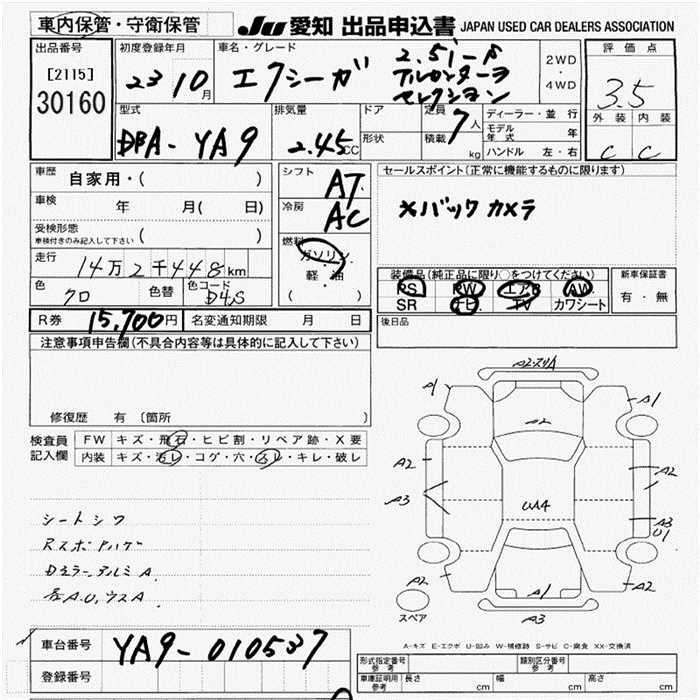 車内保管・守衛保管 JU 愛知 出品申込書 JAPAN USED CAR DEALERS ASSOCIATION
出品番号 初度登録年月 車名・グレード 評価点
[2115] 23 10月 エクシーガ 2.5i-S 2WD・4WD 3.5
30160 アルカンターラ
セレクション
型式 排気量 ドア 定員 7人 ディーラー・並行 外装 内装
DBA-YA9 2.45CC 形状 積載 kg モデル年式 年 C C
ハンドル 左・右
車歴 自家用・( ) シフト AT セールスポイント(正常に機能するものに限ります)
車検 年 月( 日) 冷房 AC ×バックカメラ
受検形態 ( )
車検付きのみ記入して下さい
燃料 ガソリン・軽油 ( )
走行 14万2千448km
装備品(純正品に限り○をつけてください) 新車保証書
色 クロ 色替 色コード D4S PS PW エアB AW 有・無
SR ナビ TV カワシート
R券 15,700円 名変通知期限 月 日 後日品
注意事項申告欄(不具合内容等は具体的に記入して下さい)
修復歴 有 〔箇所
検査員 FW キズ・飛石・ヒビ割・リペア跡・X要
記入欄 内装 キズ・汚レ・コゲ・穴・スレ・キレ・破レ
シートシワ
Dミラー.アルミA
A1 A1
A2
A2 A2
A3 UA4 A3
U1
A2 A1 A2
スペア A3
A-キズ E-エクボ U-凹み W-補修跡 S-サビ C-腐食 XX-交換済
車台番号 YA9-010537
登録番号
形式指定番号 参考 類別区分番号 参考
車庫証明用 参考 長さ cm 幅 cm 高さ cm